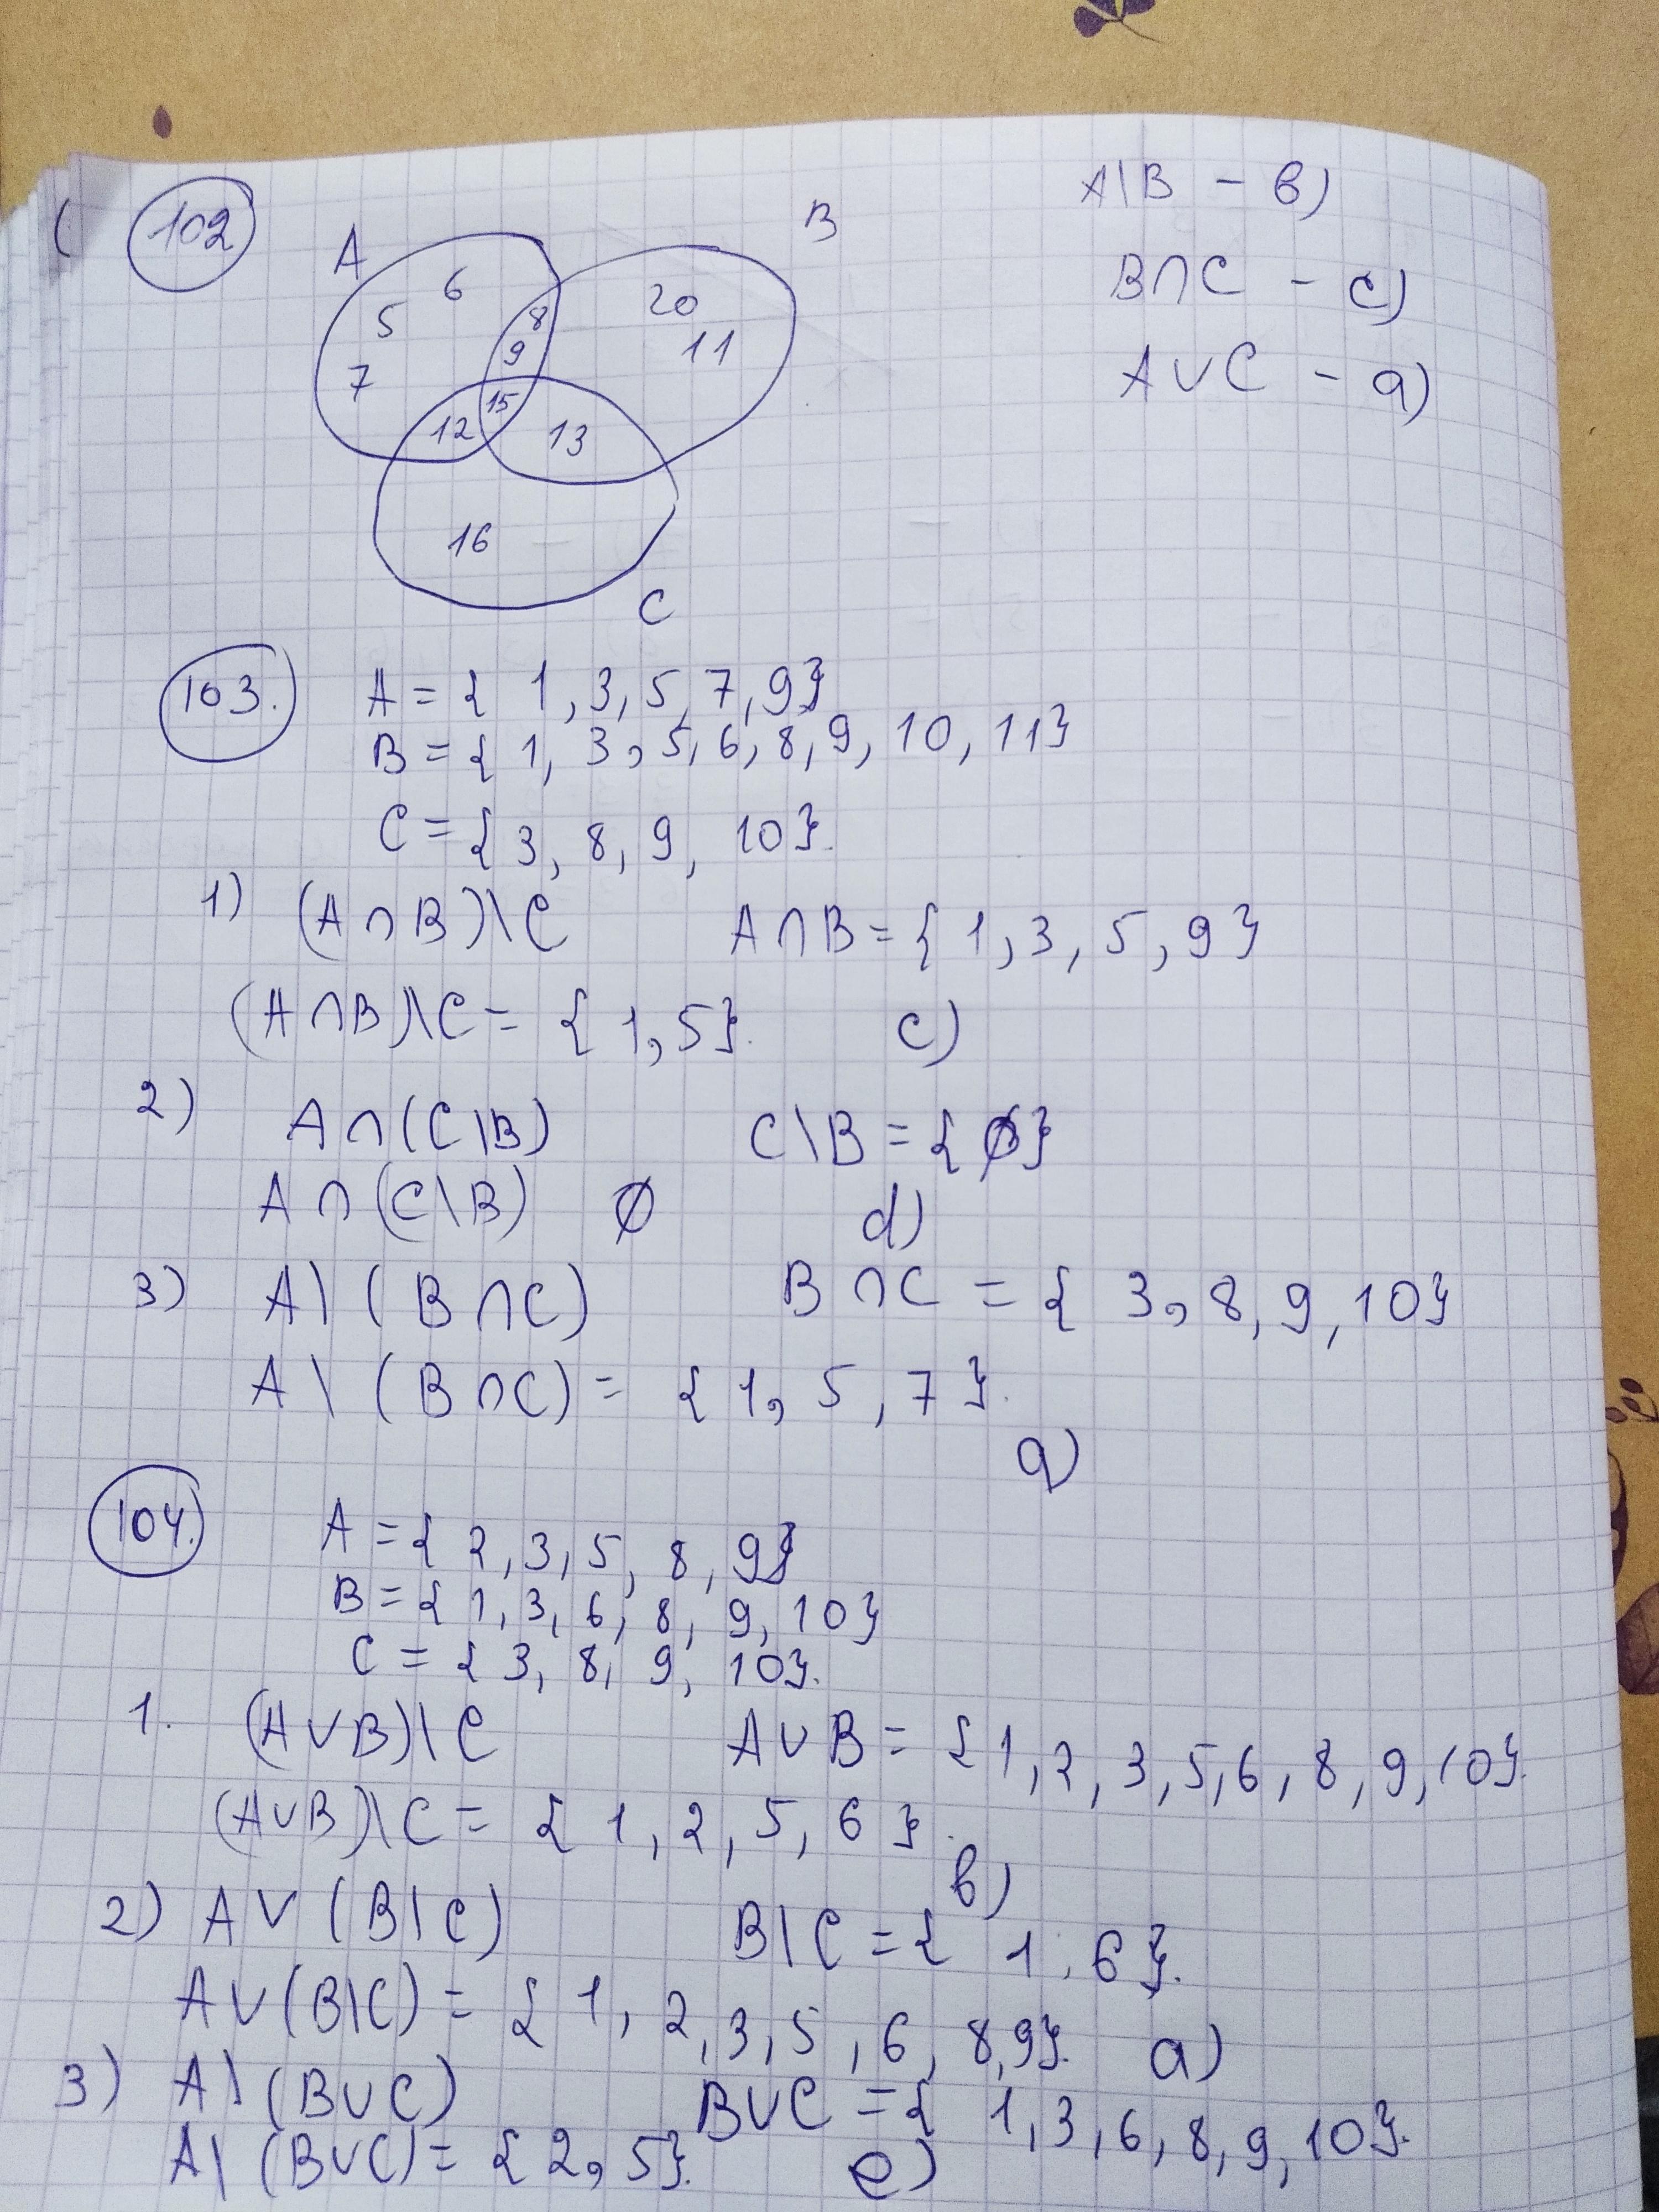 102
A
B
6
5
7
8
9
20
11
15
12
13
16
C
A\B - в)
B∩C - c)
A∪C - a)
103.
A = { 1, 3, 5, 7, 9}
B = { 1, 3, 5, 6, 8, 9, 10, 11}
C = { 3, 8, 9, 10}.
1) (A∩B)\C A∩B = { 1, 3, 5, 9}
(A∩B)\C = { 1, 5}. c)
2) A∩(C\B) C\B = { ∅}
A∩(C\B) ∅ d)
3) A\(B∩C) B∩C = { 3, 8, 9, 10}
A\(B∩C) = { 1, 5, 7}.
a)
104.
A = { 2, 3, 5, 8, 9}
B = { 1, 3, 6, 8, 9, 10}
C = { 3, 8, 9, 10}.
1. (A∪B)\C A∪B = { 1, 2, 3, 5, 6, 8, 9, 10}.
(A∪B)\C = { 1, 2, 5, 6 }.
в)
2) A∪(B\C) B\C = { 1, 6}.
A∪(B\C) = { 1, 2, 3, 5, 6, 8, 9}. a)
3) A\(B∪C) B∪C = { 1, 3, 6, 8, 9, 10}.
A\(B∪C) = { 2, 5}. e)